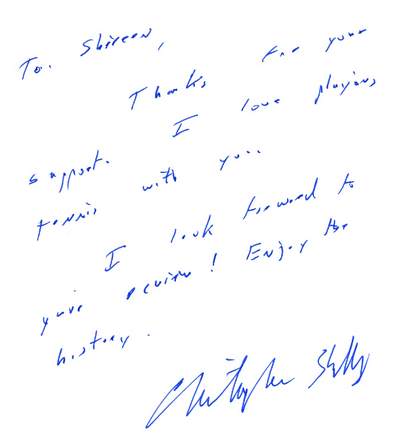 To. Shireen,
Thanks for your
support. I love playing
tennis with you.
I look forward to
your review! Enjoy the
history.
Christopher Shelley